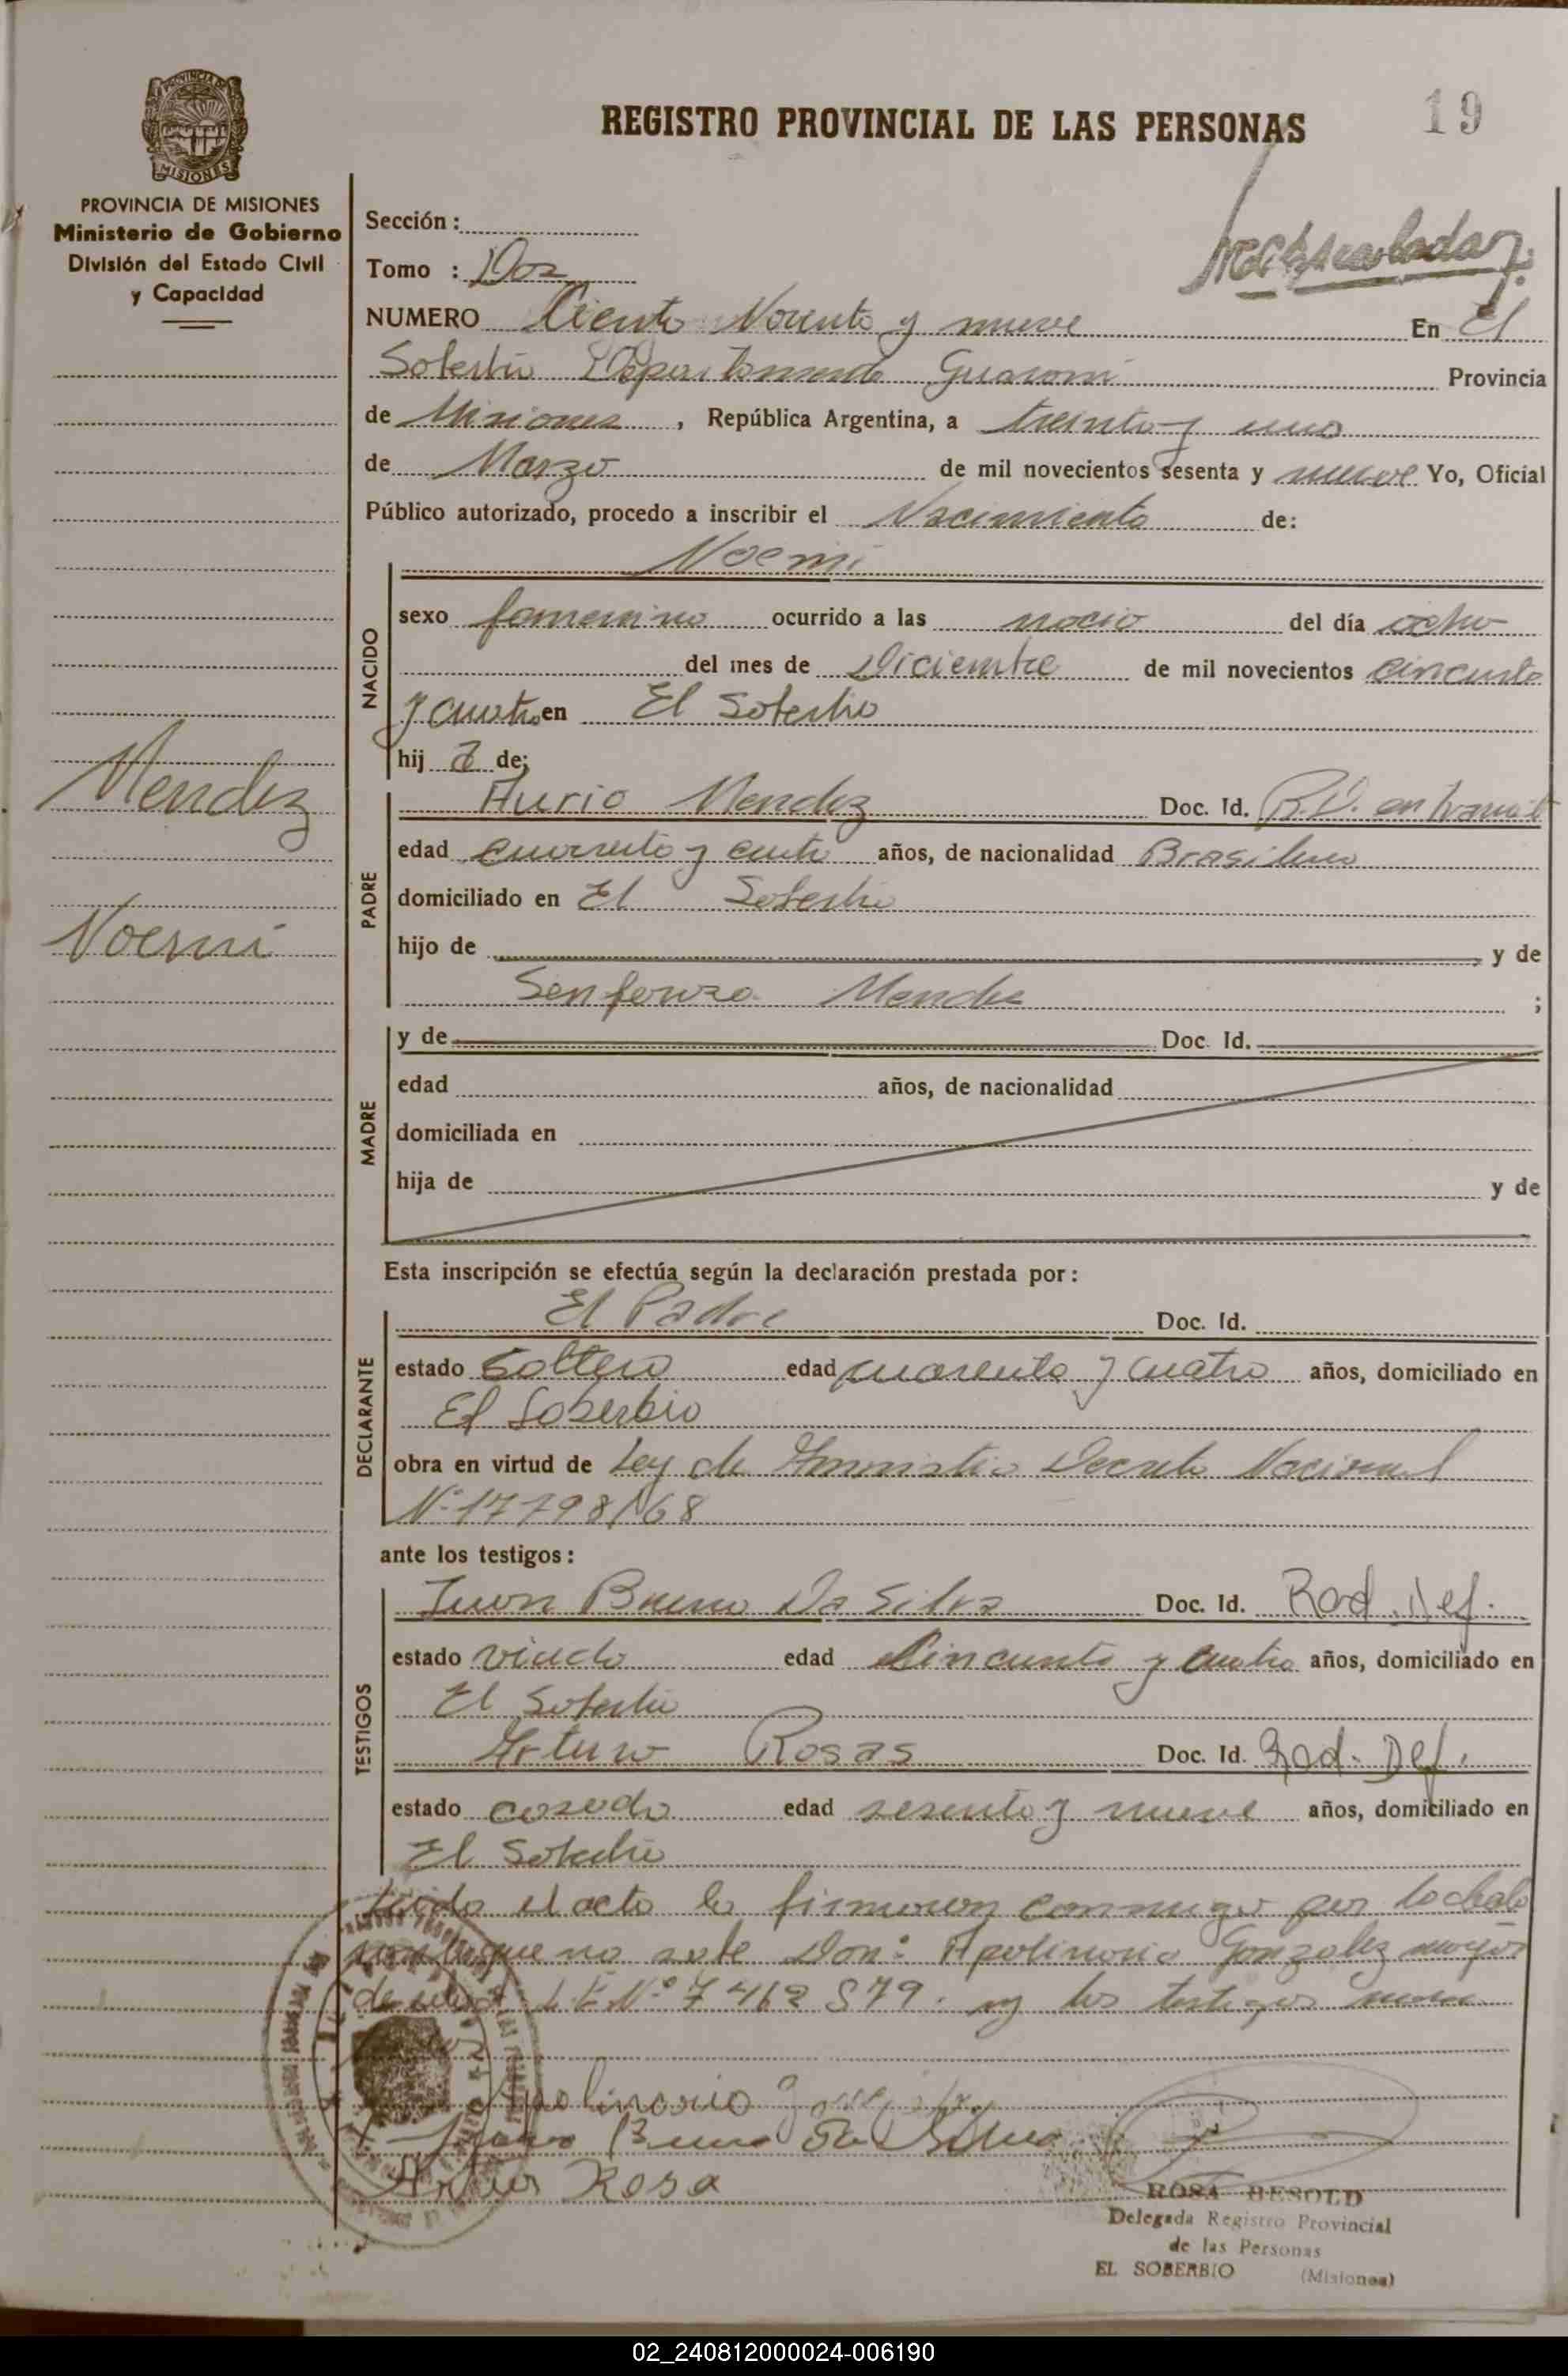 REGISTRO PROVINCIAL DE LAS PERSONAS
19
PROVINCIA DE MISIONES
MISIONES
PROVINCIA DE MISIONES
Ministerio de Gobierno
División del Estado Civil
y Capacidad
Sección :
Tomo : Dos
NUMERO Ciento Noventa y nueve En El
Soberbio Departamento Guarani Provincia
de Misiones , República Argentina, a treinta y uno
de Marzo de mil novecientos sesenta y nueve Yo, Oficial
Público autorizado, procedo a inscribir el Nacimiento de:
Noemi
NACIDO
sexo femenino ocurrido a las del día ocho
del mes de Diciembre de mil novecientos cincuenta
y cuatro en El Soberbio
hij a de;
Mendez
Noemi
PADRE
Aurio Mendez Doc. Id. en tramite
edad cuarenta y cuatro años, de nacionalidad Brasilero
domiciliado en El Soberbio
hijo de y de
Mendez ;
MADRE
y de Doc. Id.
edad años, de nacionalidad
domiciliada en
hija de y de
Esta inscripción se efectúa según la declaración prestada por :
DECLARANTE
El Padre Doc. Id.
estado Soltero edad cuarenta y cuatro años, domiciliado en
El Soberbio
obra en virtud de Ley de Amnistia Decreto Nacional
Nº 17798/68
ante los testigos :
TESTIGOS
Juan Bueno Da Silva Doc. Id. Rad. Def.
estado viudo edad Cincuenta y cuatro años, domiciliado en
El Soberbio
Arturo Rosas Doc. Id. Rad. Def.
estado casado edad sesenta y nueve años, domiciliado en
El Soberbio
Leida el acta la firmaron conmigo por
que no sabe Don: Apolinario Gonzalez mayor
de edad L.E Nº 7 462 879. y los testigos
Apolinario
Bueno Da Silva
Rosa
ROSA BESOLD
Delegada Registro Provincial
de las Personas
EL SOBERBIO (Misiones)
02_240812000024-006190